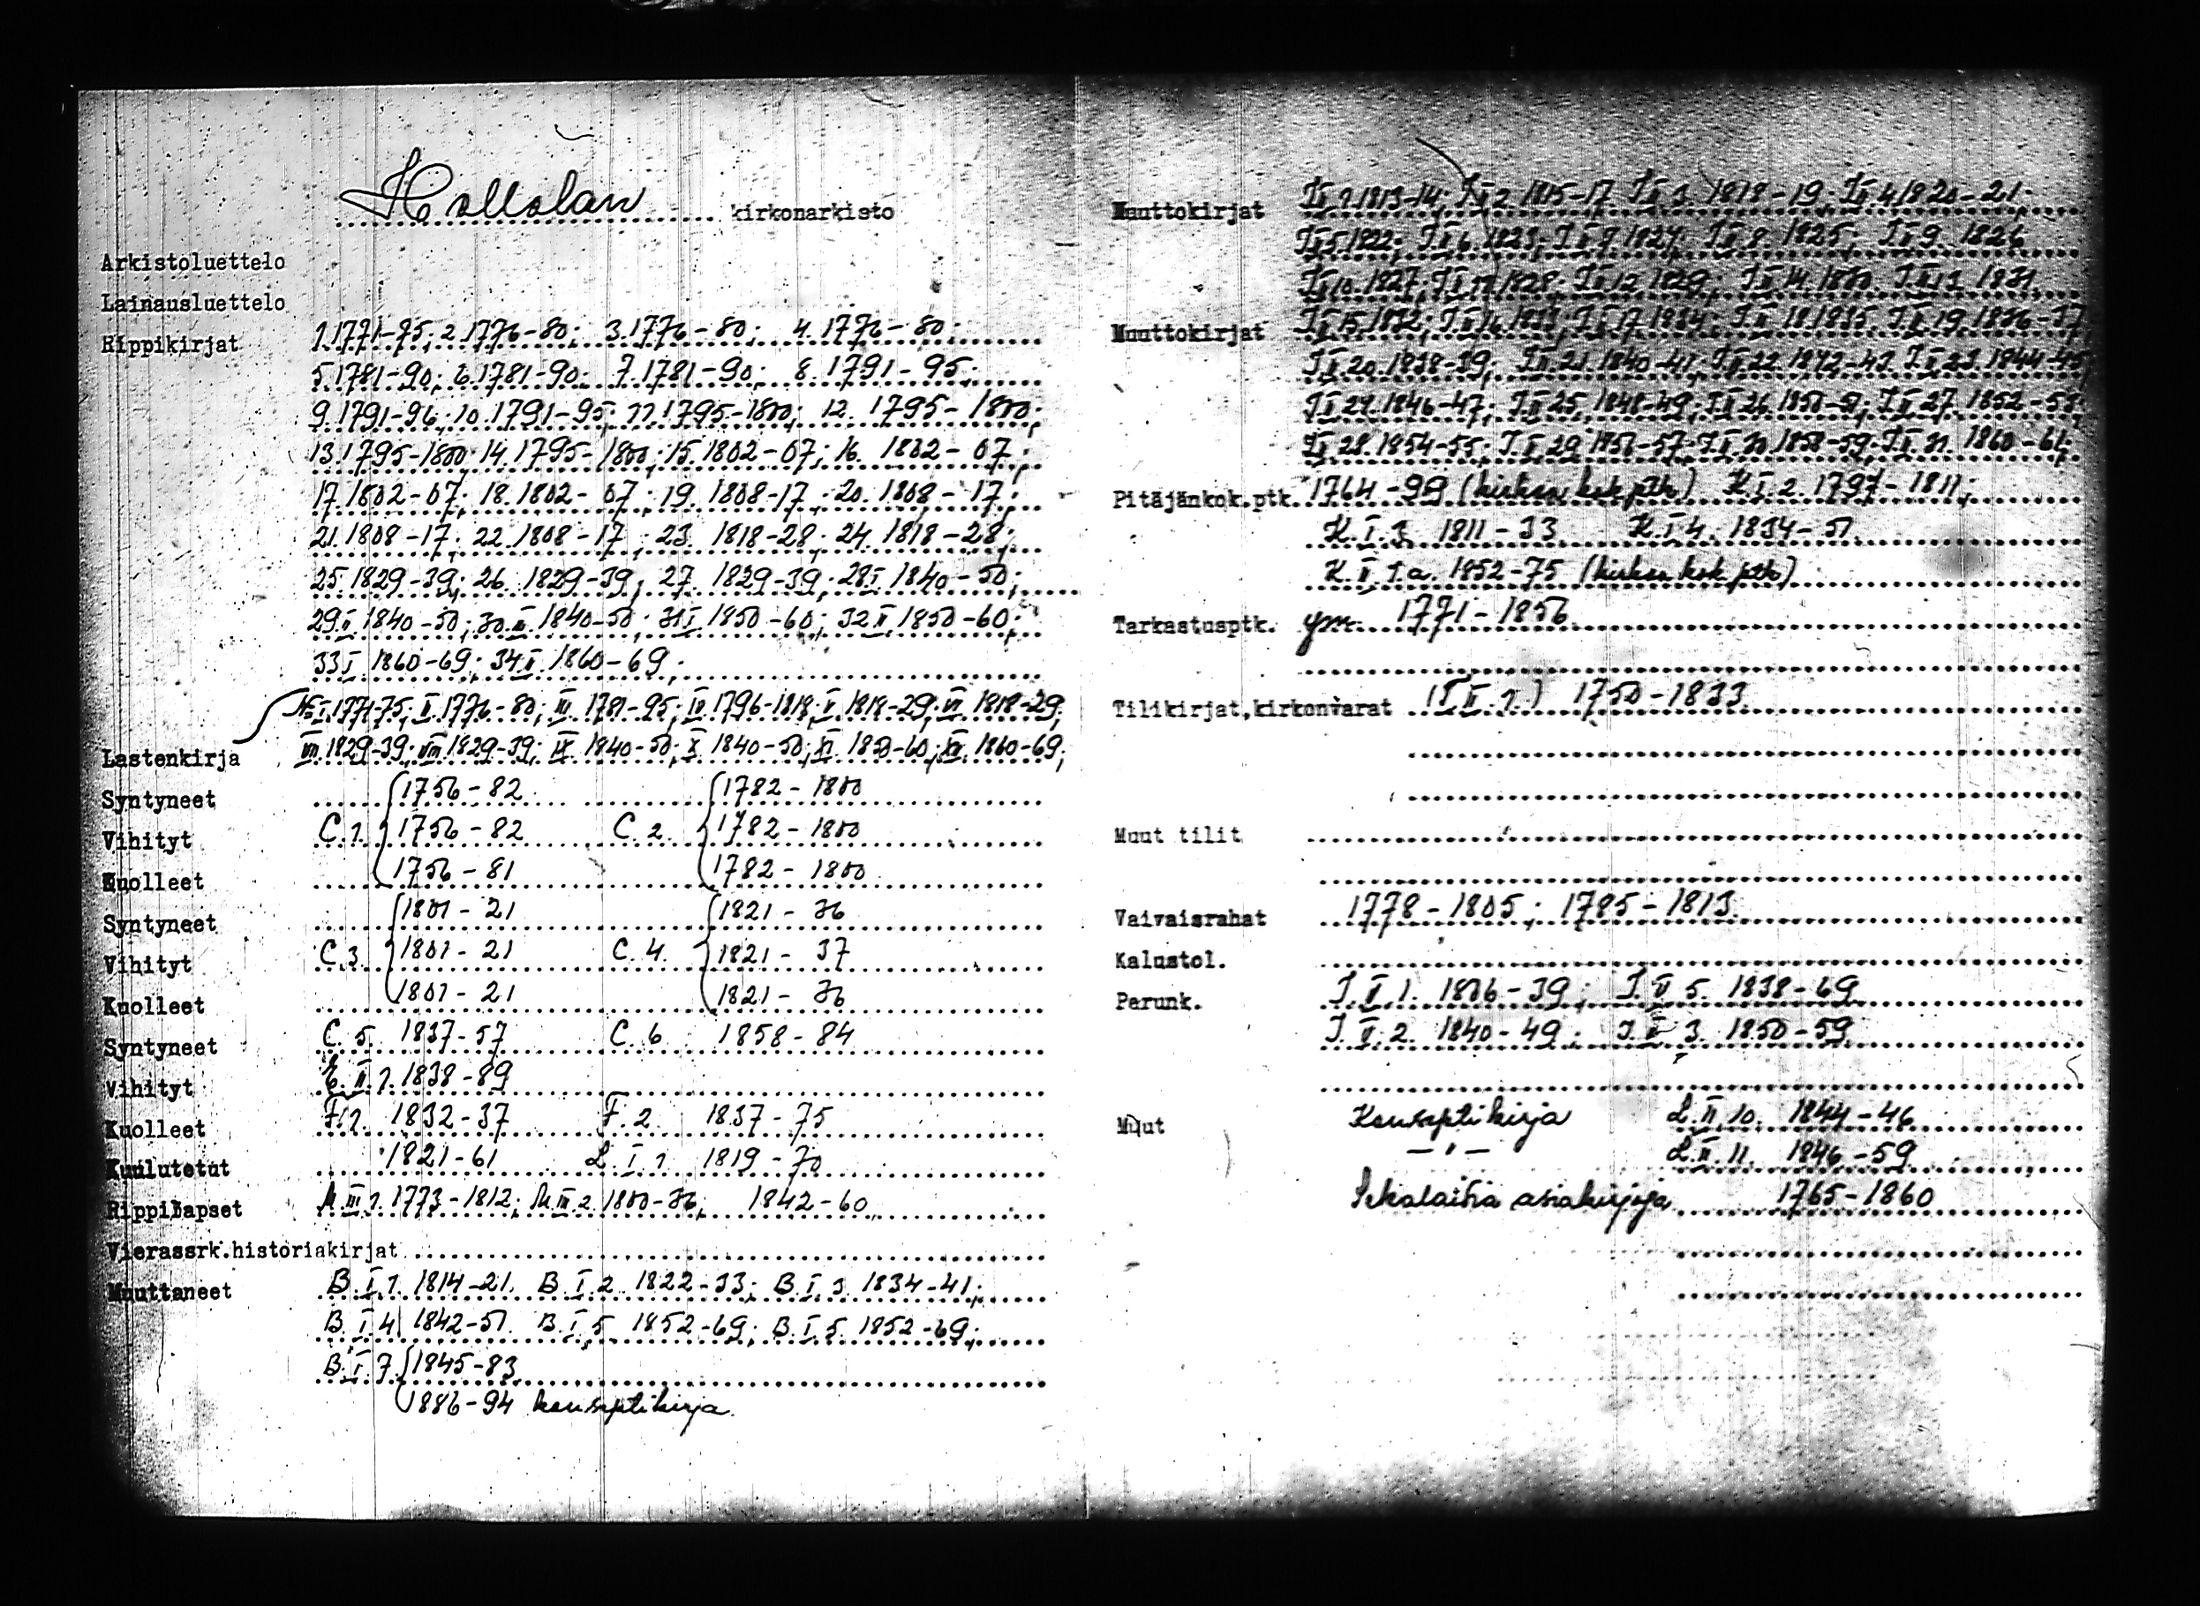 Hollolan kirkonarkisto
Arkistoluettelo
Lainausluettelo
Rippikirjat 1. 1771-75; 2. 1776-80; 3. 1776-80; 4. 1776-80;
5. 1781-90; 6. 1781-90; 7. 1781-90; 8. 1791-95;
9. 1791-96; 10. 1791-95; 11. 1795-1800; 12. 1795-1800;
13. 1795-1800; 14. 1795-1800; 15. 1802-07; 16. 1802-07;
17. 1802-07; 18. 1802-07; 19. 1808-17; 20. 1808-17;
21. 1808-17; 22. 1808-17; 23. 1818-28; 24. 1818-28;
25. 1829-39; 26. 1829-39; 27. 1829-39; 28 I. 1840-50;
29 II. 1840-50; 30 III. 1840-50; 31 I. 1850-60; 32 II. 1850-60;
33 I. 1860-69; 34 II. 1860-69;
No I. 1771-75; II. 1776-80; III. 1781-95; IV. 1796-1818; V. 1818-29; VI. 1818-29;
Lastenkirja VII. 1829-39; VIII. 1829-39; IX. 1840-50; X. 1840-50; XI. 1850-60; XII. 1860-69;
Syntyneet 1756-82 1782-1800
Vihityt C. 1. 1756-82 C. 2. 1782-1800
Kuolleet 1756-81 1782-1800
Syntyneet 1801-21 1821-36
Vihityt C. 3. 1801-21 C. 4. 1821-37
Kuolleet 1801-21 1821-36
Syntyneet C. 5. 1837-57 C. 6 1858-84
Vihityt E. II. 1. 1838-89
Kuolleet F. 1. 1832-37 F. 2. 1837-75
Kuulutetut 1821-61 L. I. 1 1819-70
Rippilapset III. 1. 1773-1812; III. 2. 1800-36; 1842-60
Vierassrk.historiakirjat
Muuttaneet B. I. 1. 1814-21. B. I. 2. 1822-33; B. I. 3 1834-41;
B. I. 4 1842-51. B. I. 5. 1852-69; B. I. 5. 1852-69;
B. I. 7 1845-83
1886-94 konseptikirja
Muuttokirjat I II 1. 1813-14; I II 2 1815-17. I II 3. 1818-19. I II 4 1820-21;
I II 5. 1822; I II 6. 1823; I II 7. 1824; I II 8. 1825; I II 9. 1826
I II 10. 1827; I II 11 1828; I II 12 1829; I II 14. 1830. I II 13 1831
Muuttokirjat I II 15. 1832; I II 16. 1833; I II 17. 1834; I II 18 1835 I II 19. 1836-37
I II 20. 1838-39; I II 21. 1840-41; I II 22. 1842-43. I II 23. 1844-45;
I II 24. 1846-47; I II 25. 1848-49; I II 26. 1850-51; I II 27. 1852-53;
I II 28. 1854-55; I II 29. 1856-57; I II 30. 1858-59; I II 31. 1860-61;
Pitäjänkok.ptk. 1764-99 (kirkon kok ptk) K. I. 2. 1797-1811;
K. I. 3. 1811-33 K. I. 4. 1834-51.
K. II. 1.a. 1852-75 (kirkon kok. ptk)
Tarkastusptk. ym. 1771-1856
Tilikirjat,kirkonvarat (I II. 1.) 1750-1833
Muut tilit
Vaivaisrahat 1778-1805; 1785-1813
Kalustol.
Perunk. I. II. 1. 1806-39; I. II 5. 1838-69
I. II. 2. 1840-49; I. II. 3. 1850-59
Muut Konseptikirja L. II. 10. 1844-46
-"- L. II. 11. 1846-59
Sekalaisia asiakirjoja 1765-1860